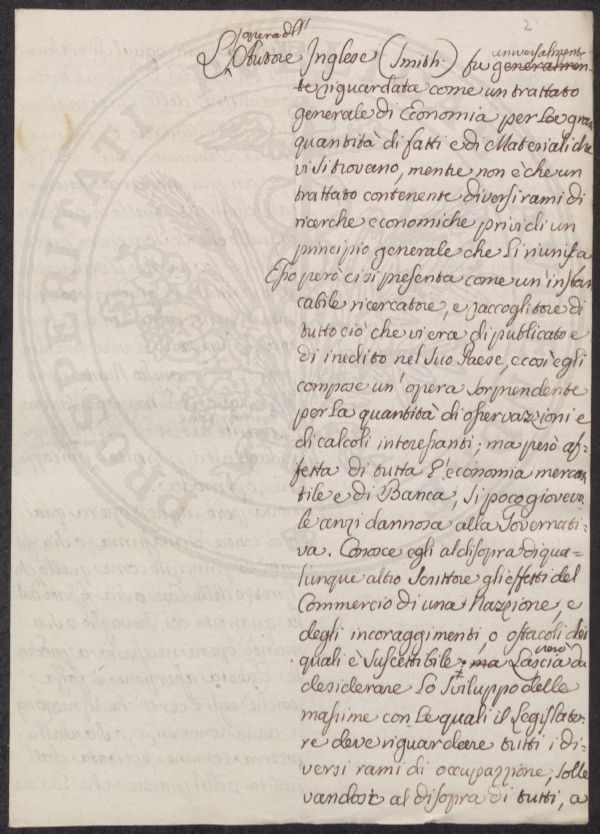 2
opera dell'
L'Autore Inglese (Smith) fu generalmen=
universalmente
te riguardata come un trattato
generale di Economia per la gran
quantità di fatti e di Materiali che
vi si trovano, mentre non è che un
trattato contenente diversi rami di
ricerche economiche privi di un
principio generale che li riunisca
Esso però ci si presenta come un instan
cabile ricercatore, e raccoglitore di
tutto ciò che vi era di publicato e
di inedito nel suo Paese, e così egli
compose un' opera sorprendente
per la quantità di osservazzioni e
di calcoli interessanti; ma però af=
fetta di tutta l'economia mercan
tile e di Banca, si poco giovevo
le anzi dannosa alla Governati=
va. Conosce egli al disopra di qua=
lunque altro Scrittore gli effetti del
Commercio di una Nazzione, e
degli incoraggimenti, o ostacoli dei
quali è suscettibile; ma Lascia da
però
desiderare lo sviluppo delle
massime con le quali il Legislato=
re deve riguardare tutti i di=
versi rami di occupazzione, solle
vandosi al disopra di tutti, a
PROSPERITATI